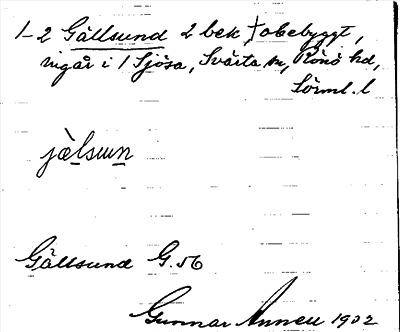 1-2 Gällsund 2 bek † obebyggt,
ingår i 1 Sjösa, Svärta sn, Rönö hd,
Sörml. l
jälsun
Gällsund G. 56
Gunnar Annell 1902